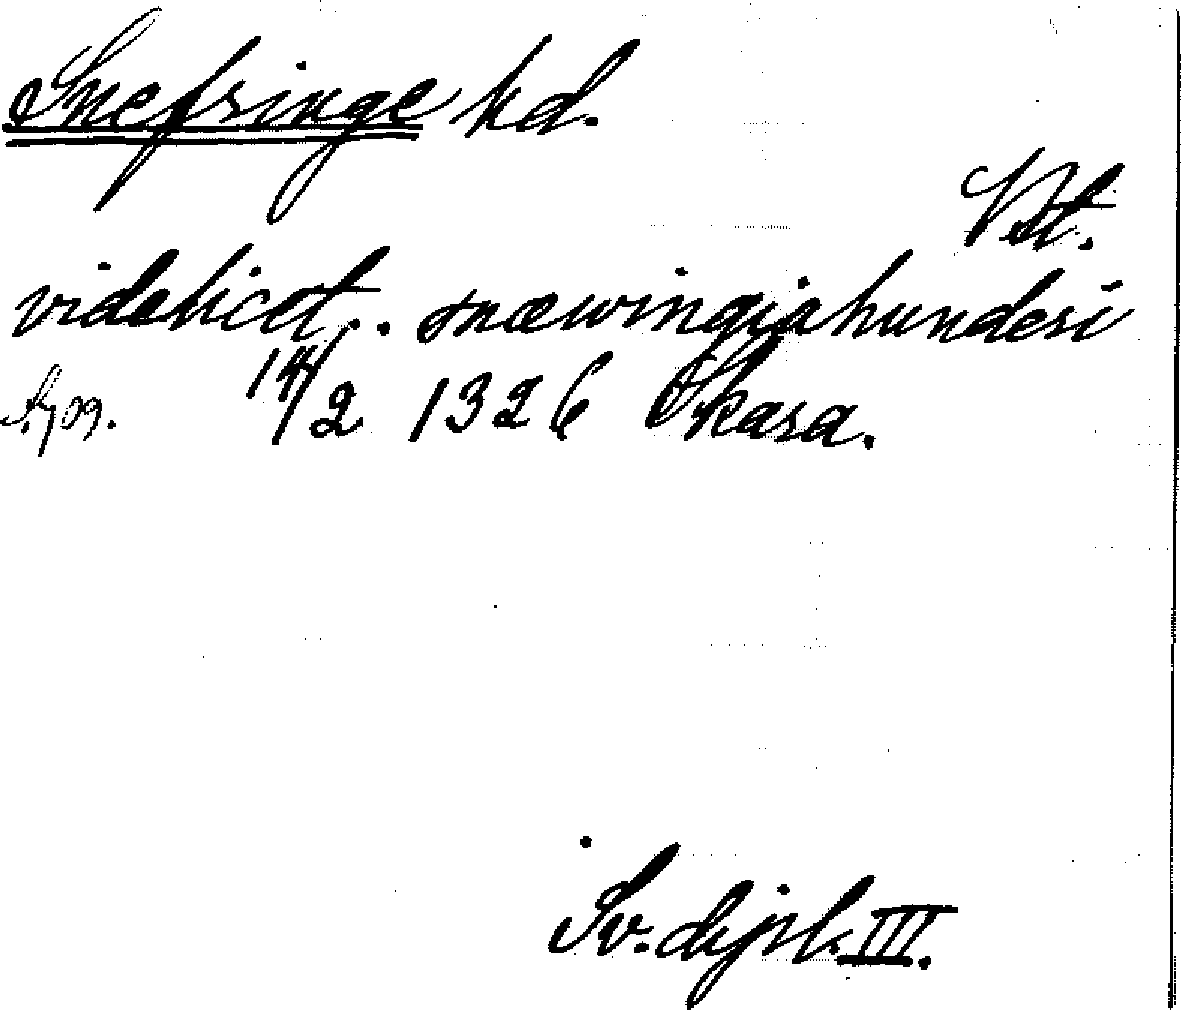 Snefringe hd.
Vst.
videlicet.. snæwingiahunderi
14/2 1326 Skara.
Sv. dipl. III.